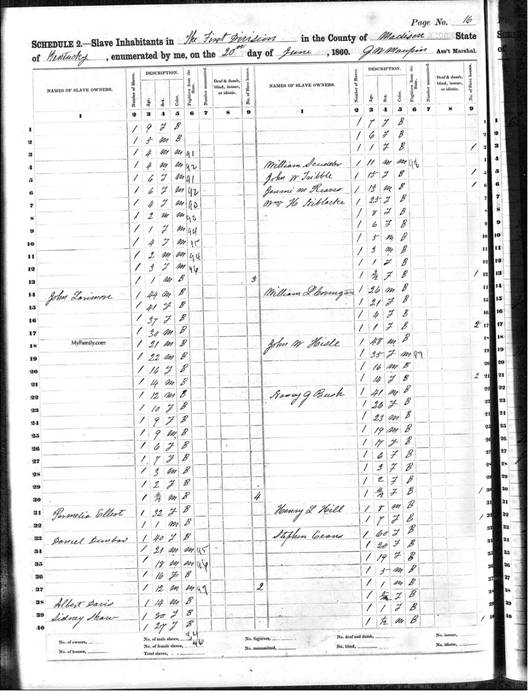 Page No. 16
SCHEDULE 2.—Slave Inhabitants in The First Division in the County of Madison State
of Kentucky, enumerated by me, on the 20th day of June, 1860. J W Maupin Ass't Marshal.
NAMES OF SLAVE OWNERS.
Number of Slaves.
DESCRIPTION.
Age.
Sex.
Color.
Fugitives from the State.
Number manumitted.
Deaf & dumb, blind, insane, or idiotic.
No. of Slave houses.
NAMES OF SLAVE OWNERS.
Number of Slaves.
DESCRIPTION.
Age.
Sex.
Color.
Fugitives from the State.
Number manumitted.
Deaf & dumb, blind, insane, or idiotic.
No. of Slave houses.
1 2 3 4 5 6 7 8 9 1 2 3 4 5 6 7 8 9
1 1 9 F B 1 7 F B 1
2 1 5 M B 1 6 F B 2
3 1 4 M M 91 1 1 F B 1 3
4 1 4 M M 92 William 1 11 M M 4
5 1 6 F M 91 John W Tribble 1 15 F B 1 5
6 1 6 F M 92 M Reaves 1 13 M B 1 6
7 1 4 F M 90 Wm H 1 25 F B 7
8 1 2 M M 93 1 8 F B 8
9 1 1 F M 94 1 6 F B 9
10 1 4 F M 95 1 5 M B 10
11 1 2 M M 94 1 3 M B 11
12 1 3 F M 96 1 1 F B 12
13 1 1 M B 3 1 F B 1 13
14 John Larimore 1 44 M B William L Covington 1 26 M B 14
15 1 41 F B 1 21 F B 15
16 1 37 F B 1 4 F B 16
17 1 30 M B 1 1 F B 2 17
18 Myfamily.com 1 21 M B John W Hisle 1 48 M B 18
19 1 22 M B 1 35 F M 97 19
20 1 16 F B 1 16 M B 20
21 1 14 M B 1 14 F B 2 21
22 1 12 M B Nancy G Bush 1 41 M B
23 1 10 F B 1 26 F B
24 1 9 F B 1 23 M B
25 1 9 M B 1 19 M B
26 1 6 F B 1 17 F B
27 1 7 F B 1 6 F B
28 1 3 M B 1 3 F B
29 1 2 F B 1 2 F B
30 1 M B 4 1 F B
31 Permelia Elbert 1 32 F B Henry L Hill 1 8 M B
32 1 1 M B 1 7 F B
33 Daniel Dunbar 1 40 F B Stephen Evans 1 60 F B
34 1 21 M M 95 1 20 F B
35 1 18 M M 96 1 19 F B
36 1 16 F B 1 5 M B
37 1 12 M M 99 2 1 1 M B
38 Albert Davis 1 14 M B 1 F B
39 Sidney Shaw 1 30 F B 1 1 F B
40 1 27 F B 1 M B
No. of owners,
No. of houses,
No. of male slaves,
No. of female slaves,
Total slaves,
No. fugitives,
No. manumitted,
No. deaf and dumb,
No. blind,
No. insane,
No. idiotic,